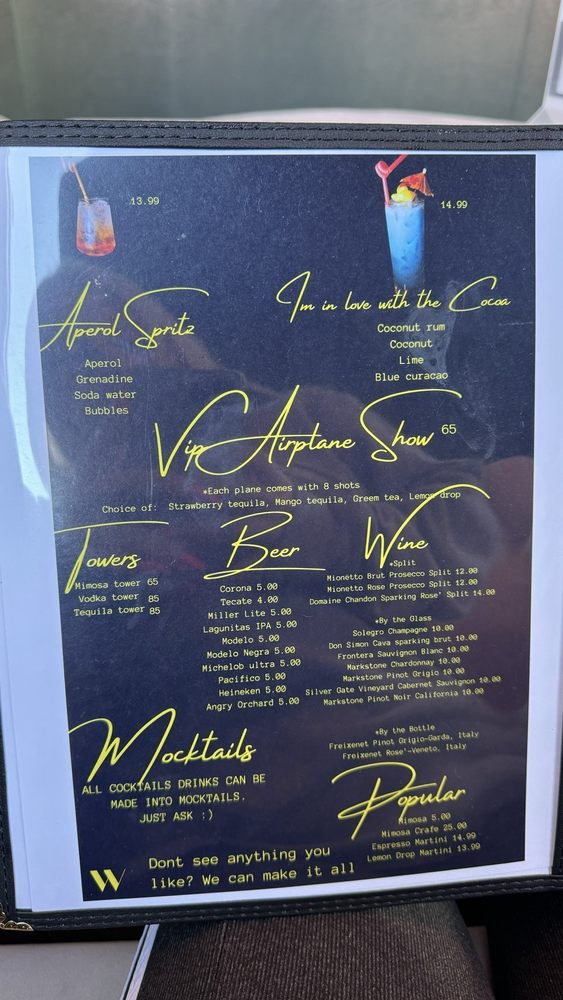 13.99
14.99
Aperol Spritz
Aperol
Grenadine
Soda water
Bubbles
Im in love with the Cocoa
Coconut rum
Coconut
Lime
Blue curacao
Vip Airplane Show 65
*Each plane comes with 8 shots
Choice of: Strawberry tequila, Mango tequila, Greem tea, Lemon drop
Towers
Mimosa tower 65
Vodka tower 85
Tequila tower 85
Beer
Corona 5.00
Tecate 4.00
Miller Lite 5.00
Lagunitas IPA 5.00
Modelo 5.00
Modelo Negra 5.00
Michelob ultra 5.00
Pacifico 5.00
Heineken 5.00
Angry Orchard 5.00
Wine
*Split
Mionetto Brut Prosecco Split 12.00
Mionetto Rose Prosecco Split 12.00
Domaine Chandon Sparking Rose' Split 14.00
*By the Glass
Solegro Champagne 10.00
Don Simon Cava sparking brut 10.00
Frontera Sauvignon Blanc 10.00
Markstone Chardonnay 10.00
Markstone Pinot Grigio 10.00
Silver Gate Vineyard Cabernet Sauvignon 10.00
Markstone Pinot Noir California 10.00
*By the Bottle
Freixenet Pinot Grigio-Garda, Italy
Freixenet Rose'-Veneto, Italy
Mocktails
ALL COCKTAILS DRINKS CAN BE
MADE INTO MOCKTAILS.
JUST ASK :)
Popular
Mimosa 5.00
Mimosa Crafe 25.00
Espresso Martini 14.99
Lemon Drop Martini 13.99
W
Dont see anything you
like? We can make it all